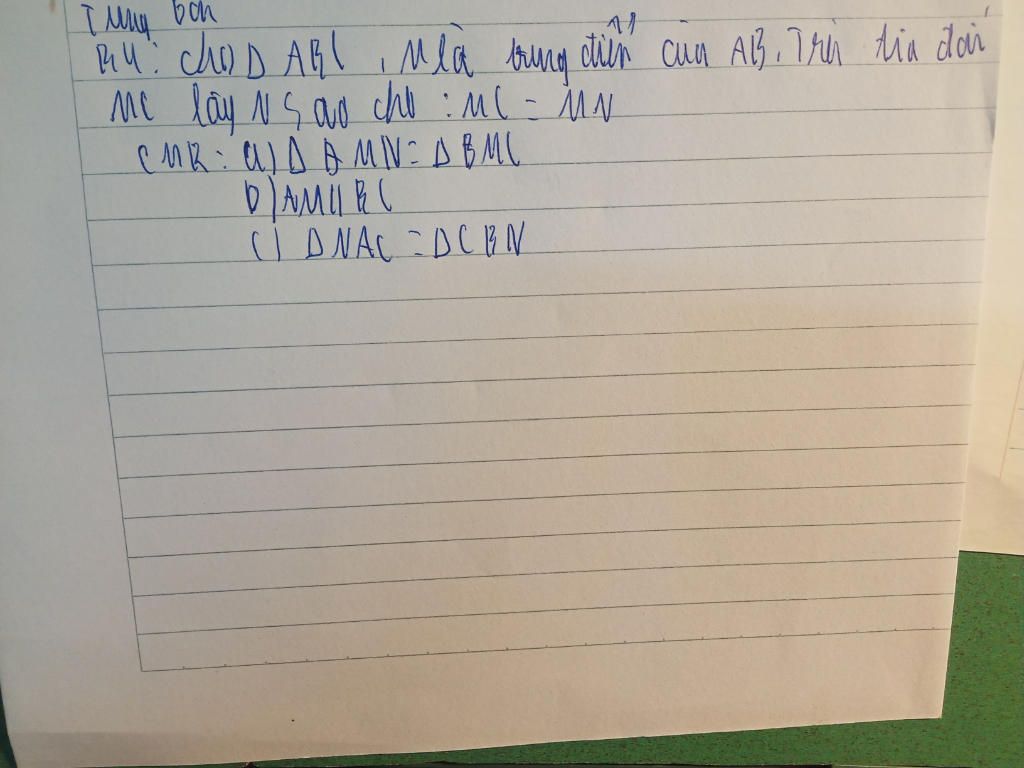 Trung bon
B4: cho Δ ABC, M là trung điểm của AB. Trên tia đối
MC lấy N sao cho : MC = MN
CMR: a) Δ AMN = Δ BMC
b) AM // BC
c) Δ NAC = Δ CBN